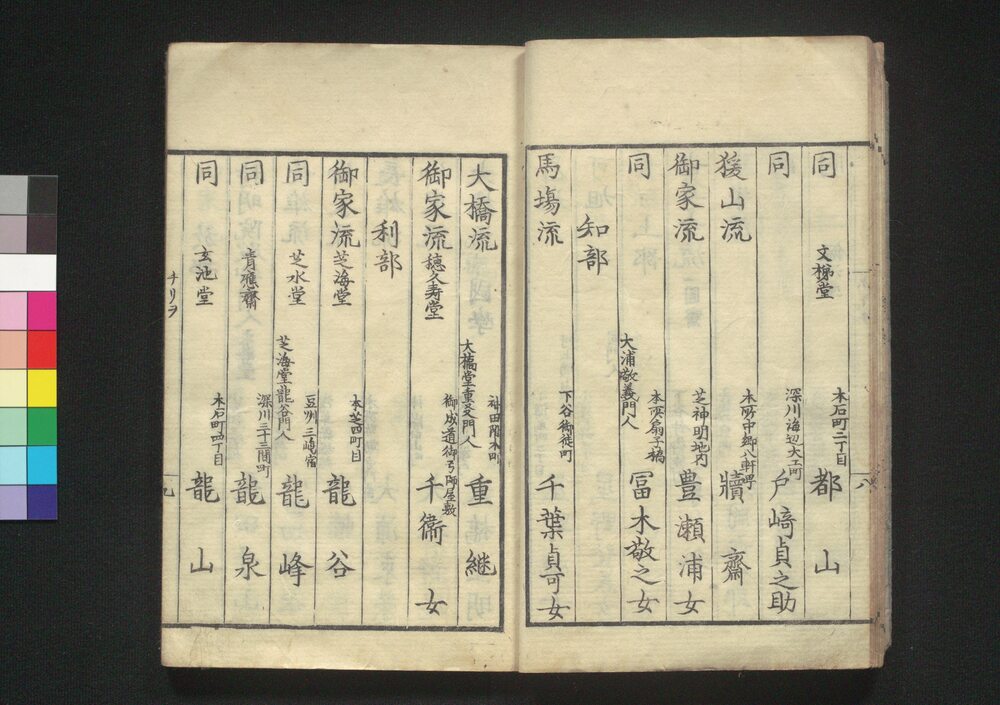 同 文梯堂 本石町二丁目 都山
同 深川海辺大工町 戸﨑貞之助
猨山流 本所中郷八軒町 牘齋
御家流 芝神明地内 豊瀬浦女
同 大浦敬義門人 本所扇子橋 冨木敬之女
知部
馬塲流 下谷御徒町 千葉貞可女
八
大橋流 大橋堂重政門人 神田附木町 重橋継明
御家流 穂久寿堂 御成道御弓師屋敷 千衞女
利部
御家流 芝海堂 本芝四町目 龍谷
同 芝水堂 芝海堂龍谷門人 豆州三嶋宿 龍峰
同 青雁齋 深川三十三間町 龍泉
同 玄池堂 本石町四丁目 龍山
チリヲ
九